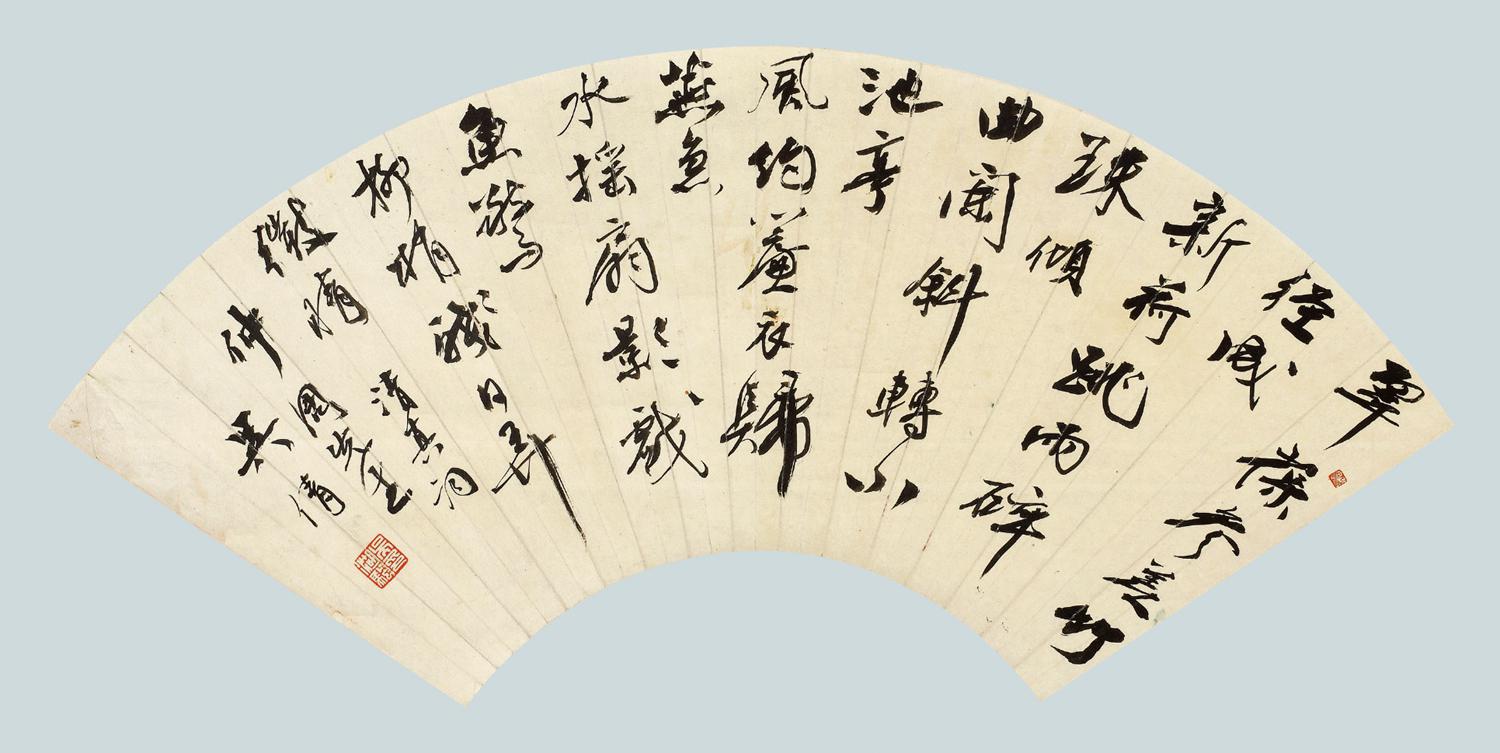 翠葆參差竹
徑成
新荷跳雨碎
珠傾
曲闌斜轉小
池亭
風約簾衣歸
燕急
水搖扇影戲
魚驚
柳梢殘日弄
微晴 清真詞
仲
吳倩